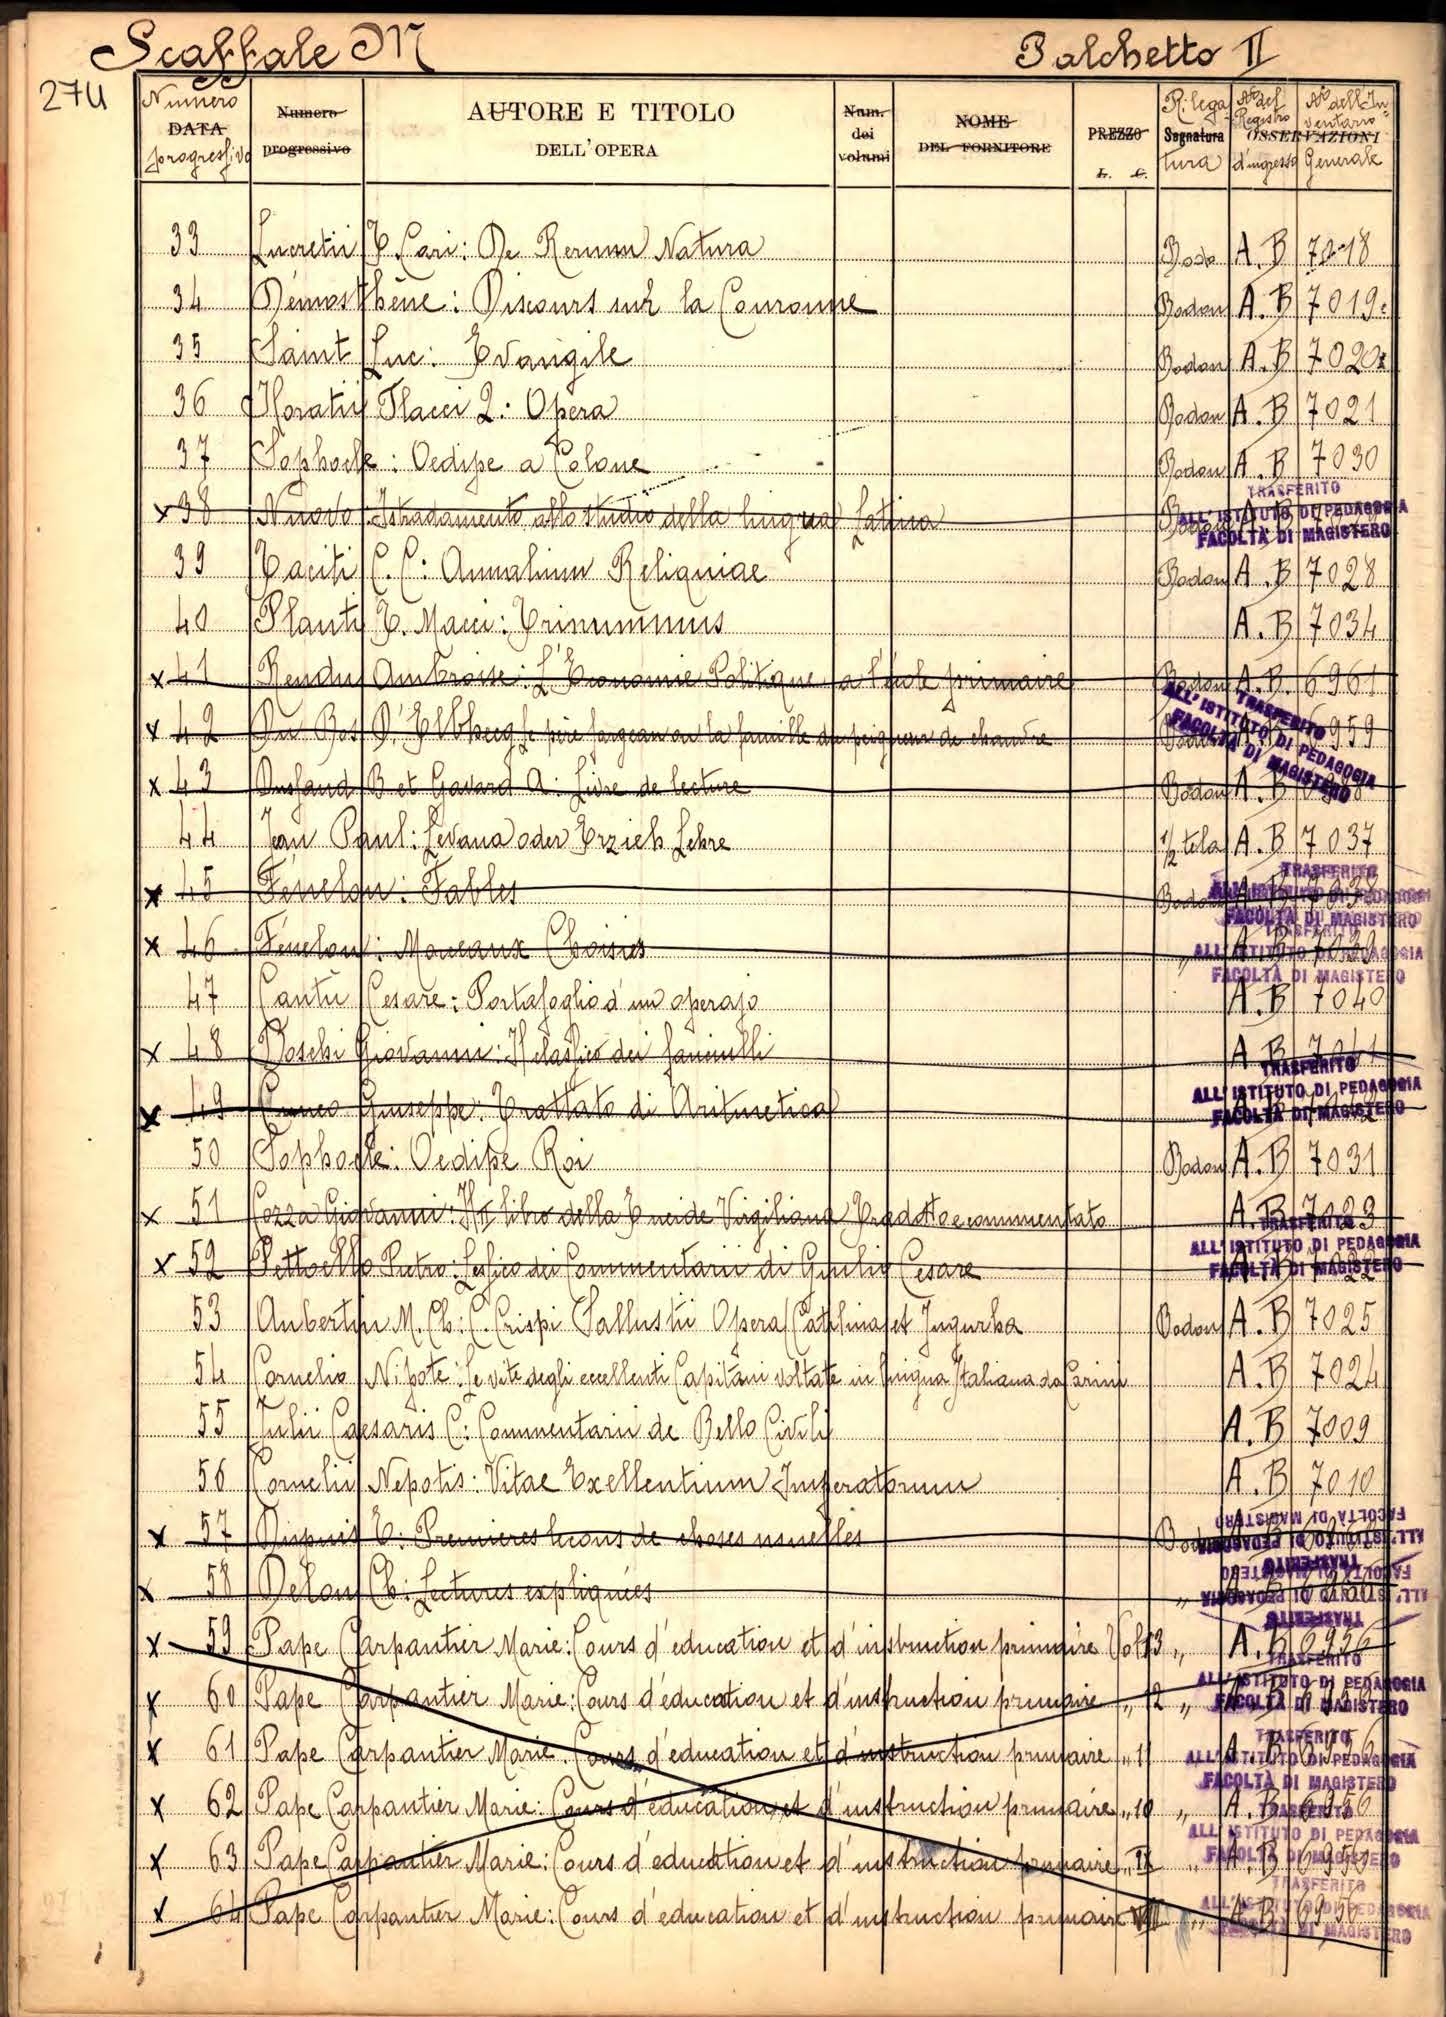 Scaffale M Palchetto II
274
Numero DATA progressivo
Numero progressivo
AUTORE E TITOLO
DELL'OPERA
Num. dei volumi
NOME
DEL FORNITORE
PREZZO
L. C.
Rilega Segnatura tura
No del Registro d'ingresso
No dell'In ventario OSSERVAZIONI Generale
33 Lucretii T. Cari: De Rerum Natura A.B 7018
34 Démosthène: Discours sur la Couronne Bodon A.B 7019
35 Saint Luc: Evangile Bodon A.B 7020
36 Horatii Flacci Q: Opera Bodon A.B 7021
37 Sophocle: Oedipe a Colone Bodon A.B 7030
x 38 Nuovo Istradamento allo studio della lingua Latina
TRASFERITO
ALL'ISTITUTO DI PEDAGOGIA
FACOLTÀ DI MAGISTERO
39 Taciti C. C: Annalium Reliquiae Bodon A.B 7028
40 Plauti T. Macci: Trinummus A.B 7034
x 41 Rendu Ambroise: L'Economie Politique a l'école primaire Bodon A.B. 6961
x 42 Du Bos D'Elbhecq le père ou la famille du de 6959
TRASFERITO
ALL'ISTITUTO DI PEDAGOGIA
FACOLTÀ DI MAGISTERO
x 43 B et Gavard A: Livre de lecture Bodon A.B
44 Jean Paul: Levana oder Erzieh Lehre 1/2 tela A.B 7037
x 45 Fénelon: Fables Bodon A.B 7038
TRASFERITO
ALL'ISTITUTO DI PEDAGOGIA
FACOLTÀ DI MAGISTERO
x 46 Fénelon: Morceaux Choisis " A.B 7039
TRASFERITO
ALL'ISTITUTO DI PEDAGOGIA
FACOLTÀ DI MAGISTERO
47 Cantù Cesare: Portafoglio d'un operajo A.B 7040
x 48 Giovanni: Il classico dei fanciulli A.B 7041
TRASFERITO
ALL'ISTITUTO DI PEDAGOGIA
FACOLTÀ DI MAGISTERO
x 49 Cuneo Giuseppe: Trattato di Aritmetica
50 Sophocle: Oedipe Roi Bodon A.B 7031
x 51 Cozza Giovanni: Il II libro della Eneide Virgiliana Tradotto e commentato A.B 7023
TRASFERITO
ALL'ISTITUTO DI PEDAGOGIA
FACOLTÀ DI MAGISTERO
x 52 Pettoello Pietro: Lessico dei Commentarii di Giulio Cesare
53 Aubertin M. Ch: C. Crispi Sallustii Opera (Catilina et Jugurtha Bodon A.B 7025
54 Cornelio Nipote: Le vite degli eccellenti Capitani voltate in lingua Italiana da Carini A.B 7024
55 Iulii Caesaris C: Commentarii de Bello Civili A.B 7009
56 Cornelii Nepotis: Vitae Exellentium Imperatorum A.B 7010
x 57 Dupuis E: Premieres leçons de choses usuelles
TRASFERITO
ALL'ISTITUTO DI PEDAGOGIA
FACOLTÀ DI MAGISTERO
x 58 Delon Ch: Lectures expliquées "
TRASFERITO
ALL'ISTITUTO DI PEDAGOGIA
FACOLTÀ DI MAGISTERO
x 59 Pape Carpantier Marie: Cours d'education et d'instruction primaire Vol 13 " A.B 6956
TRASFERITO
ALL'ISTITUTO DI PEDAGOGIA
FACOLTÀ DI MAGISTERO
x 60 Pape Carpantier Marie: Cours d'éducation et d'instruction primaire " 12 "
x 61 Pape Carpantier Marie: Cours d'education et d'instruction primaire " 11 A.B 6956
TRASFERITO
ALL'ISTITUTO DI PEDAGOGIA
FACOLTÀ DI MAGISTERO
x 62 Pape Carpantier Marie: Cours d'éducation et d'instruction primaire " 10 " A.B 6956
TRASFERITO
ALL'ISTITUTO DI PEDAGOGIA
FACOLTÀ DI MAGISTERO
x 63 Pape Carpantier Marie: Cours d'éducation et d'instruction primaire " IX " A.B 6956
x 64 Pape Carpantier Marie: Cours d'education et d'instruction primaire VIII " A.B 6956
TRASFERITO
ALL'ISTITUTO DI PEDAGOGIA
FACOLTÀ DI MAGISTERO